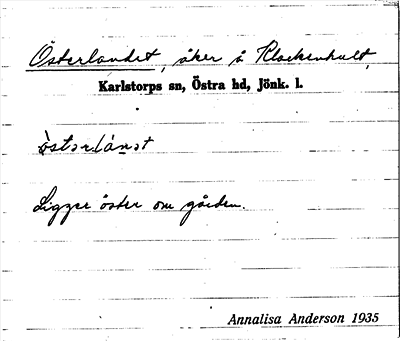 Österlandet, åker å Klockenhult,
Karlstorps sn, Östra hd, Jönk. l.
Ligger öster om gården.
Annalisa Anderson 1935